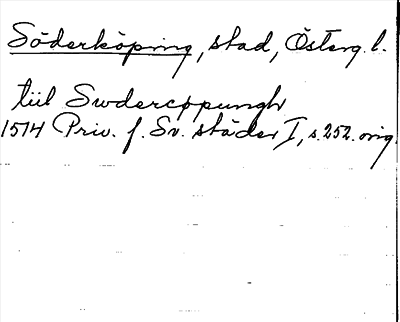 Söderköping, stad, Österg. l.
tiil Swdercøpungh
1514 Priv. f. Sv. städer I, s. 252. orig.